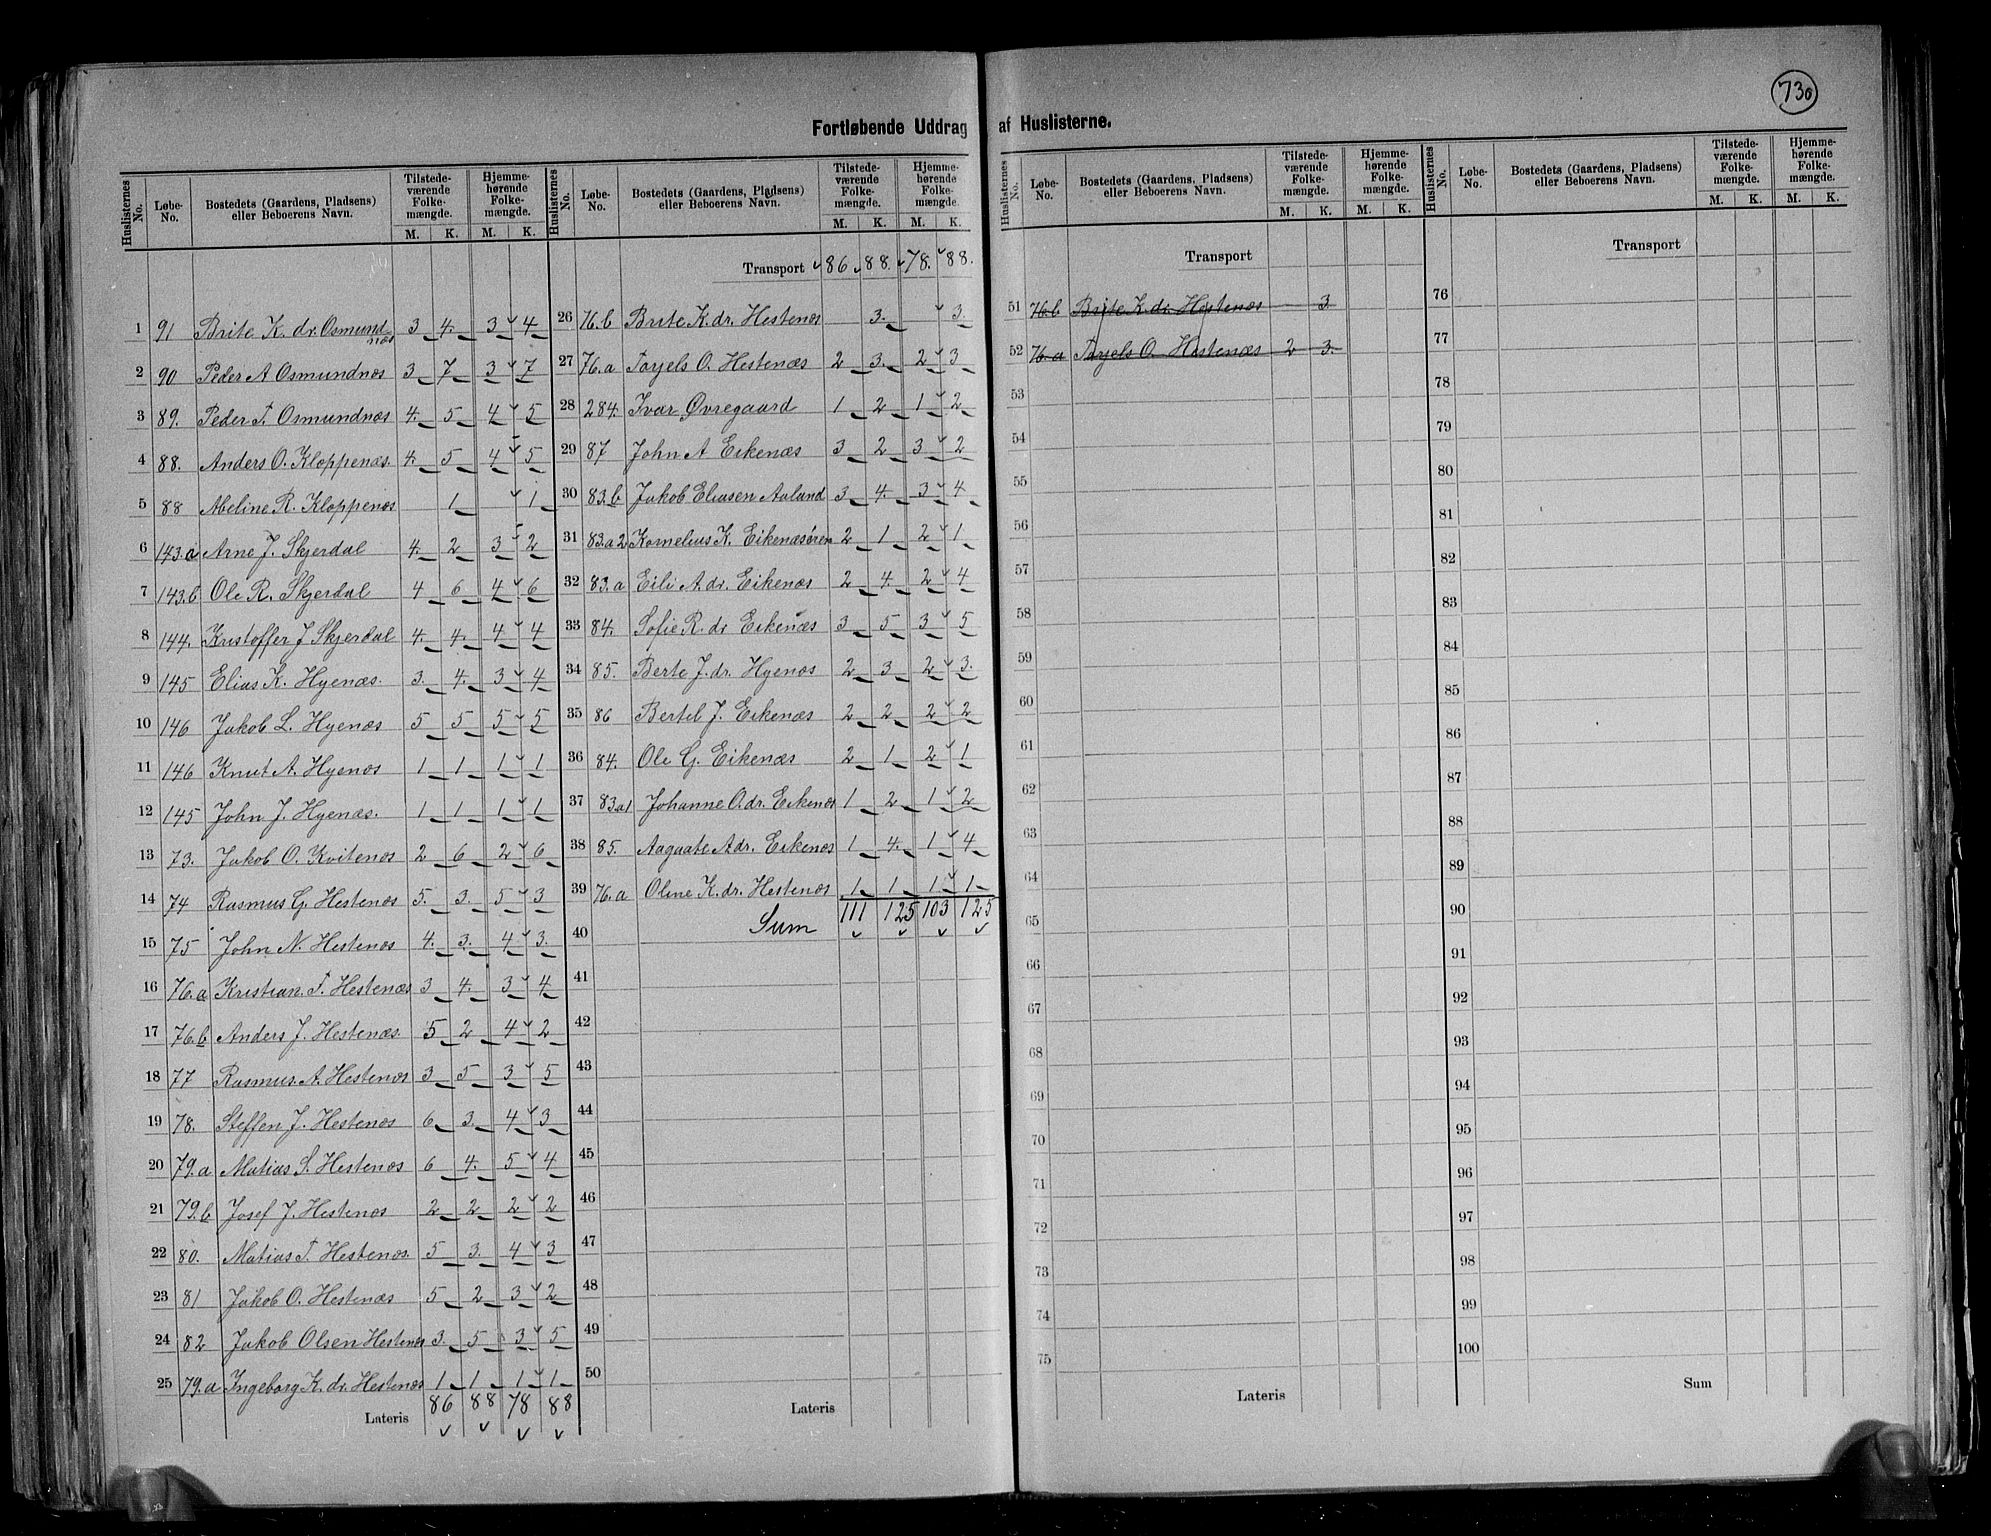 730
Fortløbende Uddrag af Huslisterne.
Huslisternes No. Løbe-No. Bostedets (Gaardens, Pladsens) eller Beboerens Navn. Tilstedeværende Folkemængde. M. K. Hjemmehørende Folkemængde. M. K.
1 91 Brite K. dr. Osmundnæs 3 4. 3 4
2 90 Peder A Osmundnæs 3 7 3 7
3 89. Peder T. Osmundnæs 4. 5 4 5
4 88. Anders O. Kloppenæs. 4. 5 4 5
5 88 Abeline R. Kloppenæs 1 1
6 143.a Arne J. Skjerdal 4. 2 3 2
7 143.b Ole R. Skjerdal 4 6 4 6
8 144. Kristoffer J Skjerdal 4. 4. 4 4
9 145 Elias K. Hyenæs. 3. 4. 3 4
10 146 Jakob L. Hyenæs 5 5 5 5
11 146 Knut A. Hyenæs 1 1 1 1
12 145 John J. Hyenæs. 1 1 1 1
13 73. Jakob O. Kvitenæs 2 6 2 6
14 74 Rasmus G. Hestenæs 5. 3. 5 3
15 75 John N. Hestenæs 4. 3. 4 3.
16 76.a Kristian. T. Hestenæs 3 4. 3 4
17 76.b Anders J. Hestenæs. 5 2 4 2
18 77 Rasmus. A. Hestenæs 3 5 3 5
19 78. Steffen J. Hestenæs 6 3. 4 3
20 79.a Matias S. Hestenæs 6 4. 5 4
21 79.b Josef J. Hestenæs 2 2 2 2
22 80. Matias T. Hestenæs. 5 3. 4 3
23 81 Jakob O. Hestenæs 5 2 3 2
24 82 Jakob Olsen Hestenæs 3. 5 3 5
25 79.a Ingeborg K. dr. Hestenæs 1 1 1 1
Lateris 86 88 78 88
Huslisternes No. Løbe-No. Bostedets (Gaardens, Pladsens) eller Beboerens Navn. Tilstedeværende Folkemængde. M. K. Hjemmehørende Folkemængde. M. K.
Transport 86 88. 78. 88.
26 76.b Brite K. dr. Hestenæs 3. 3.
27 76.a Torjels O. Hestenæs 2 3. 2 3
28 284. Ivar Øvregaard 1 2 1 2
29 87 John A Eikenæs 3 2 3 2
30 83.b Jakob Eliasen Aaland 3 4. 3 4
31 83.a2 Kornelius K. Eikenæsøren 2 1 2 1
32 83.a Eili A. dr. Eikenæs 2 4. 2 4
33 84. Sofie R. dr Eikenæs 3 5 3 5
34 85. Berte J. dr. Hyenæs 2 3 2 3.
35 86 Bertel J. Eikenæs 2 2 2 2
36 84. Ole G. Eikenæs 2 1 2 1
37 83a1 Johanne O. dr. Eikenæs 1 2 1 2
38 85. Aagaate A dr. Eikenæs 1 4. 1 4
39 76.a Oline K. dr. Hestenæs 1 1 1 1
40 Sum 111 125 103 125
41
42
43
44
45
46
47
48
49
50
Lateris
Huslisternes No. Løbe-No. Bostedets (Gaardens, Pladsens) eller Beboerens Navn. Tilstedeværende Folkemængde. M. K. Hjemmehørende Folkemængde. M. K.
Transport
51 76.b Brite K. dr. Hestenæs 3.
52 76.a Torjels O. Hestenæs 2 3.
53
54
55
56
57
58
59
60
61
62
63
64
65
66
67
68
69
70
71
72
73
74
75
Lateris
Huslisternes No. Løbe-No. Bostedets (Gaardens, Pladsens) eller Beboerens Navn. Tilstedeværende Folkemængde. M. K. Hjemmehørende Folkemængde. M. K.
Transport
76
77
78
79
80
81
82
83
84
85
86
87
88
89
90
91
92
93
94
95
96
97
98
99
100
Sum